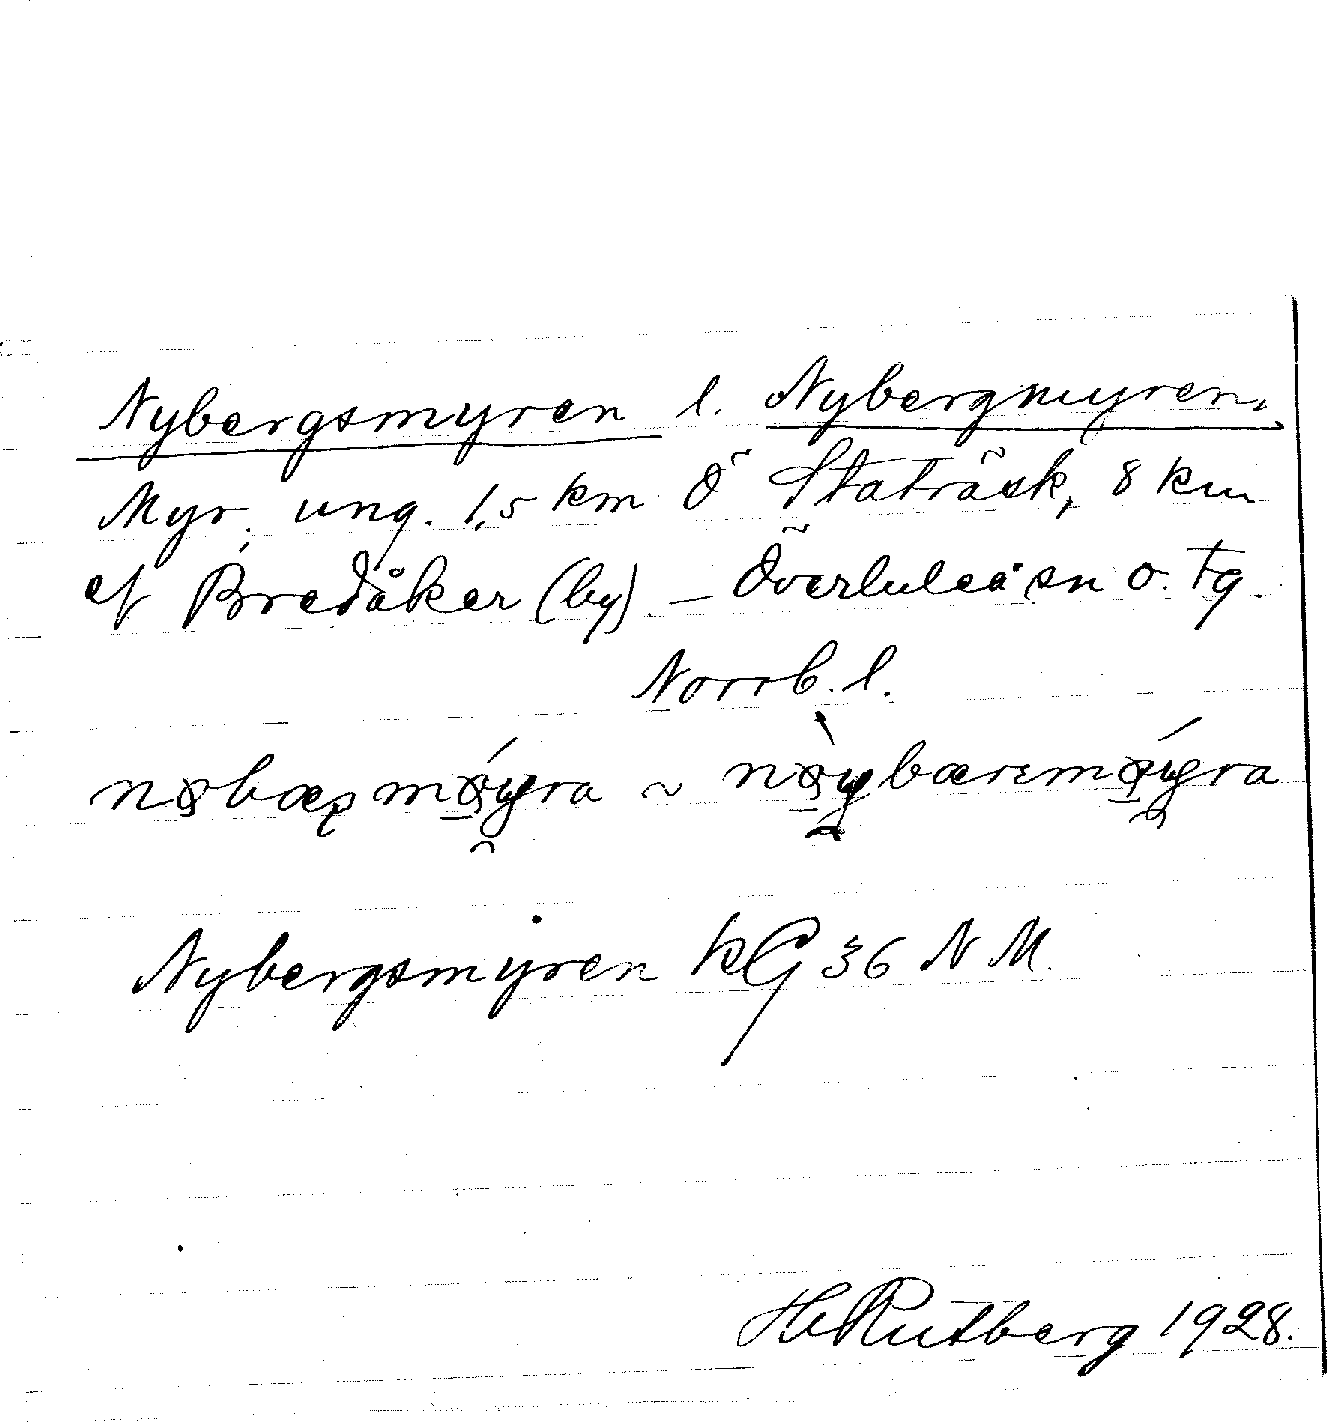 Nybergsmyren l. Nybergmyren.
Myr, ung. 1,5 km Ö Staträsk, 8 km
af Bredåker (by) – Överluleå sn o. tg.
Norrb. l.
~
Nybergsmyren kG 36 N M.
H Rutberg 1928.